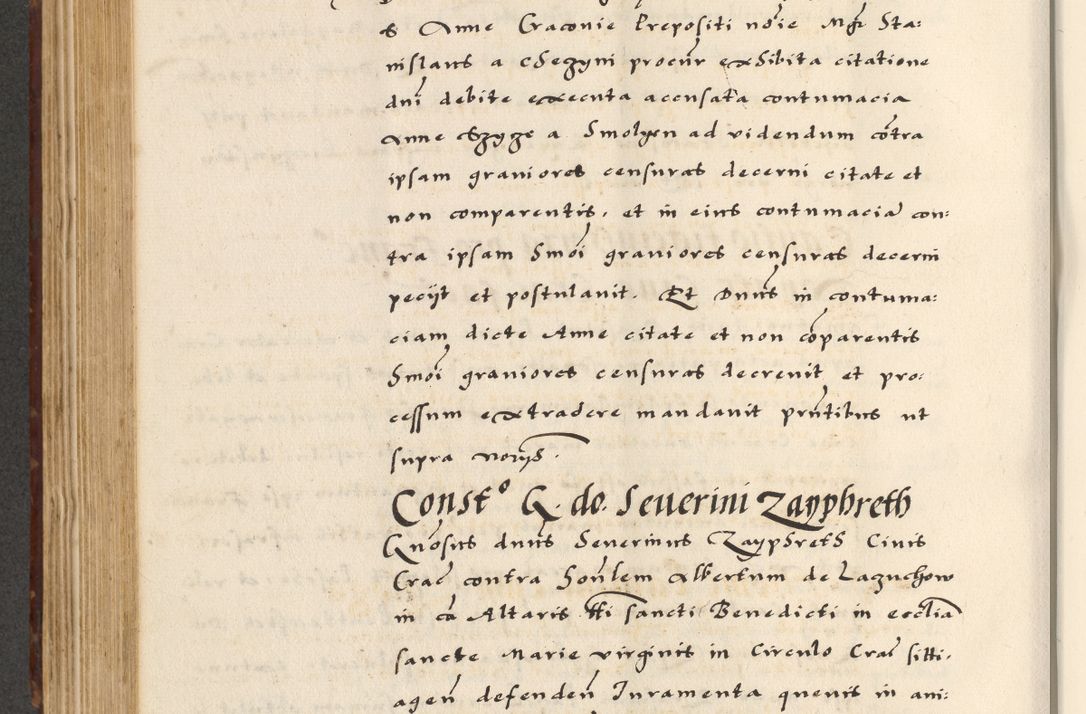 S Anne Cracovie Prepositi nõie Mgr̃i Sta:
nislaus a cSegyni procur̃ exhibita citatione
dnĩ debite executa accusata contumacia
Anne a Smolyen ad videndum cõtra
ipsam graviores censuras decerni citate et
non comparentis, et in eius contumaciã con:
tra ipsam Smõi graviores censuras decerni
peciit et postulavit. Et Dnũs in contuma:
ciam dicte Anne citate et non cõparentis
Smõi graviores censuras decrevit et pro:
cessum extradere mandavit prñtibus ut
supra noriis.
Constº G. do. Severini Zayphreth
Gñosus dnũs Severinus Zayphreth Civis
Crač contra hoñlem Albertum de Lazuchow
in cã Altaris tt̃i sancti Benedicti in ecclĩa
sancte Marie virginis in Circulo Crač sitti.
ageñ defendeñ Juramenta quevis in ani: